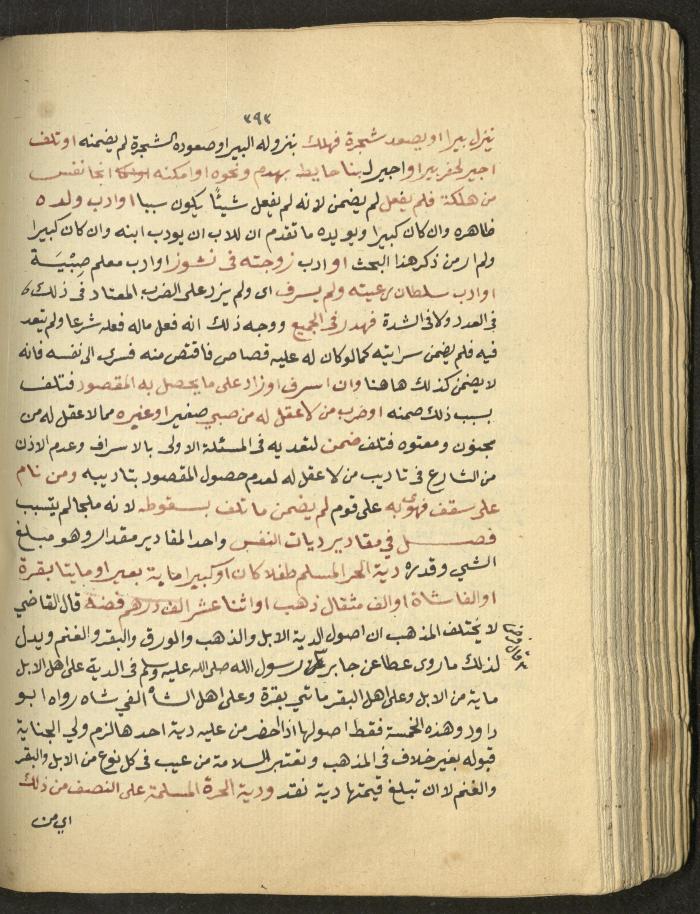 ٣٩٣
ينزل بيرا او يصعد شجرة فهلك بنزوله البيرا وصعوده الشجرة لم يضمنه او تلف
اجير لحفر بيرا واجير لبنا حايط بهدم ونحوه او امكنه انجا نفس
من هلكة فلم يفعل لم يضمن لانه لم يفعل شيئا يكون سببا او ادب ولده
ظاهره وان كان كبيرا ويويده ما تقدم ان للاب ان يودب ابنه وان كان كبيرا
ولم ار من ذكر هذا البحث او ادب زوجته فى نشوز او ادب معلم صبيية
او ادب سلطان رعيته ولم يسرف اى ولم يزد على الضرب المعتاد فى ذلك لا
فى العدد ولا فى الشدة فهدر فى الجميع ووجه ذلك انه فعل ماله فعله شرعا ولم يتعد
فيه فلم يضمن سرايته كما لو كان له عليه قصاص فاقتص منه فسرى الى نفسه فانه
لا يضمن كذلك هاهنا وان اسرف او زاد على ما يحصل به المقصود فتلف
بسبب ذلك ضمنه او ضرب من لا عقل له من صبي صغير او غيره مما لا عقل له من
مجنون ومعتوه فتلف ضمن لتعديه فى المسئلة الاولى بالاسراف وعدم الاذن
من الشارع فى تاديب من لا عقل له لعدم حصول المقصود بتاديبه ومن نام
على سقف فهوى به على قوم لم يضمن ما تلف بسقوطه لانه ملجا لم يتسبب
فصل في مقادير ديات النفس واحد المقادير مقدار وهو مبلغ
الشي وقدره دية الحر المسلم طفلا كان او كبيرا ماية بعير او مايتا بقرة
او الفا شاة او الف مثقال ذهب او اثنا عشر الف درهم فضة قال القاضي
لا يختلف المذهب ان اصول الدية الابل والذهب والورق والبقر والغنم ويدل
لذلك ما روى عطا عن جابر رسول الله صلى الله عليه وسلم فى الدية على اهل الابل
ماية من الابل وعلى اهل البقر مايتي بقرة وعلى اهل الشاء الفي شاه رواه ابو
داود وهذه الخمسة فقط اصولها اذا احضر من عليه دية احدها لزم ولي الجناية
قبوله بغير خلاف فى المذهب وتعتبر السلامة من عيب فى كل نوع من الابل والبقر
والغنم لا ان تبلغ قيمتها دية نقد ودية الحرة المسلمة على النصف من ذلك
اي من